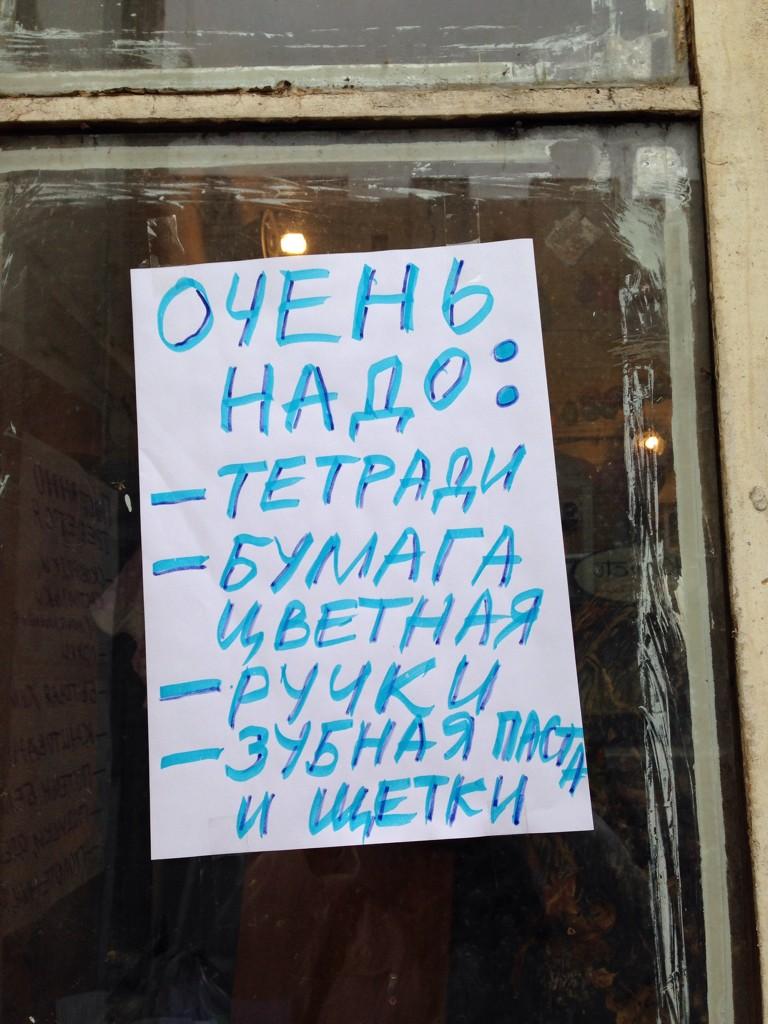 ОЧЕНЬ
НАДО:
- ТЕТРАДИ
- БУМАГА
ЦВЕТНАЯ
- РУЧКИ
- ЗУБНАЯ ПАСТА
И ЩЕТКИ